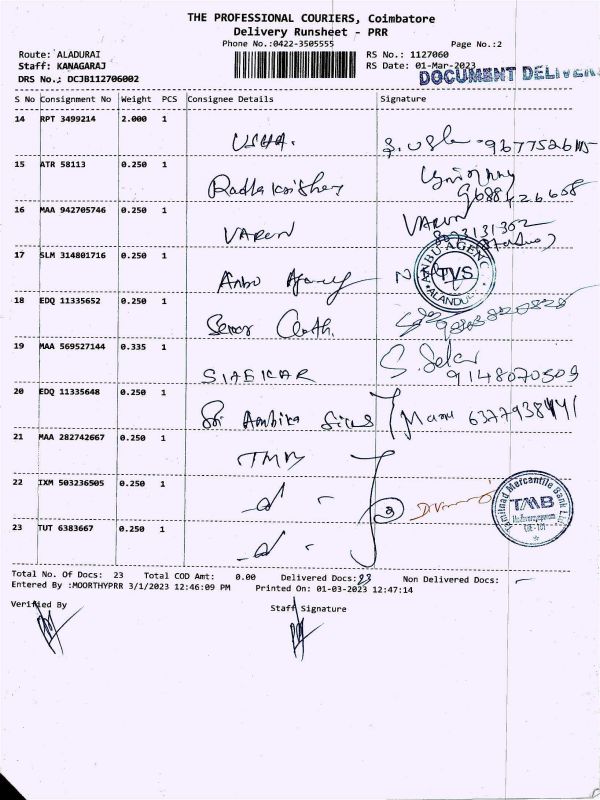 THE PROFESSIONAL COURIERS, Coimbatore
Delivery Runsheet - PRR
Phone No.:0422-3505555
Page No.:2
Route: ALADURAI
RS No.: 1127060
Staff: KANAGARAJ
RS Date: 01-Mar-2023
DRS No.: DCJB112706002
DOCUMENT DELIVER
S No Consignment No Weight PCS Consignee Details Signature
14 RPT 3499214 2.000 1
USHA.
15 ATR 58113 0.250 1
9688426658
16 MAA 942705746 0.250 1
VARUN VARUN
17 SLM 314801716 0.250 1
Anbu Agency
ANBU AGENC
TVS
18 EDQ 11335652 0.250 1
19 MAA 569527144 0.335 1
9148070509
20 EDQ 11335648 0.250 1
Sri Ambika
21 MAA 282742667 0.250 1
TMB
22 IXM 503236505 0.250 1
3
Tamilnad Mercantile Bank Ltd
TMB
23 TUT 6383667 0.250 1
Total No. Of Docs: 23 Total COD Amt: 0.00 Delivered Docs: 23 Non Delivered Docs: -
Entered By :MOORTHYPRR 3/1/2023 12:46:09 PM Printed On: 01-03-2023 12:47:14
Verified By Staff Signature